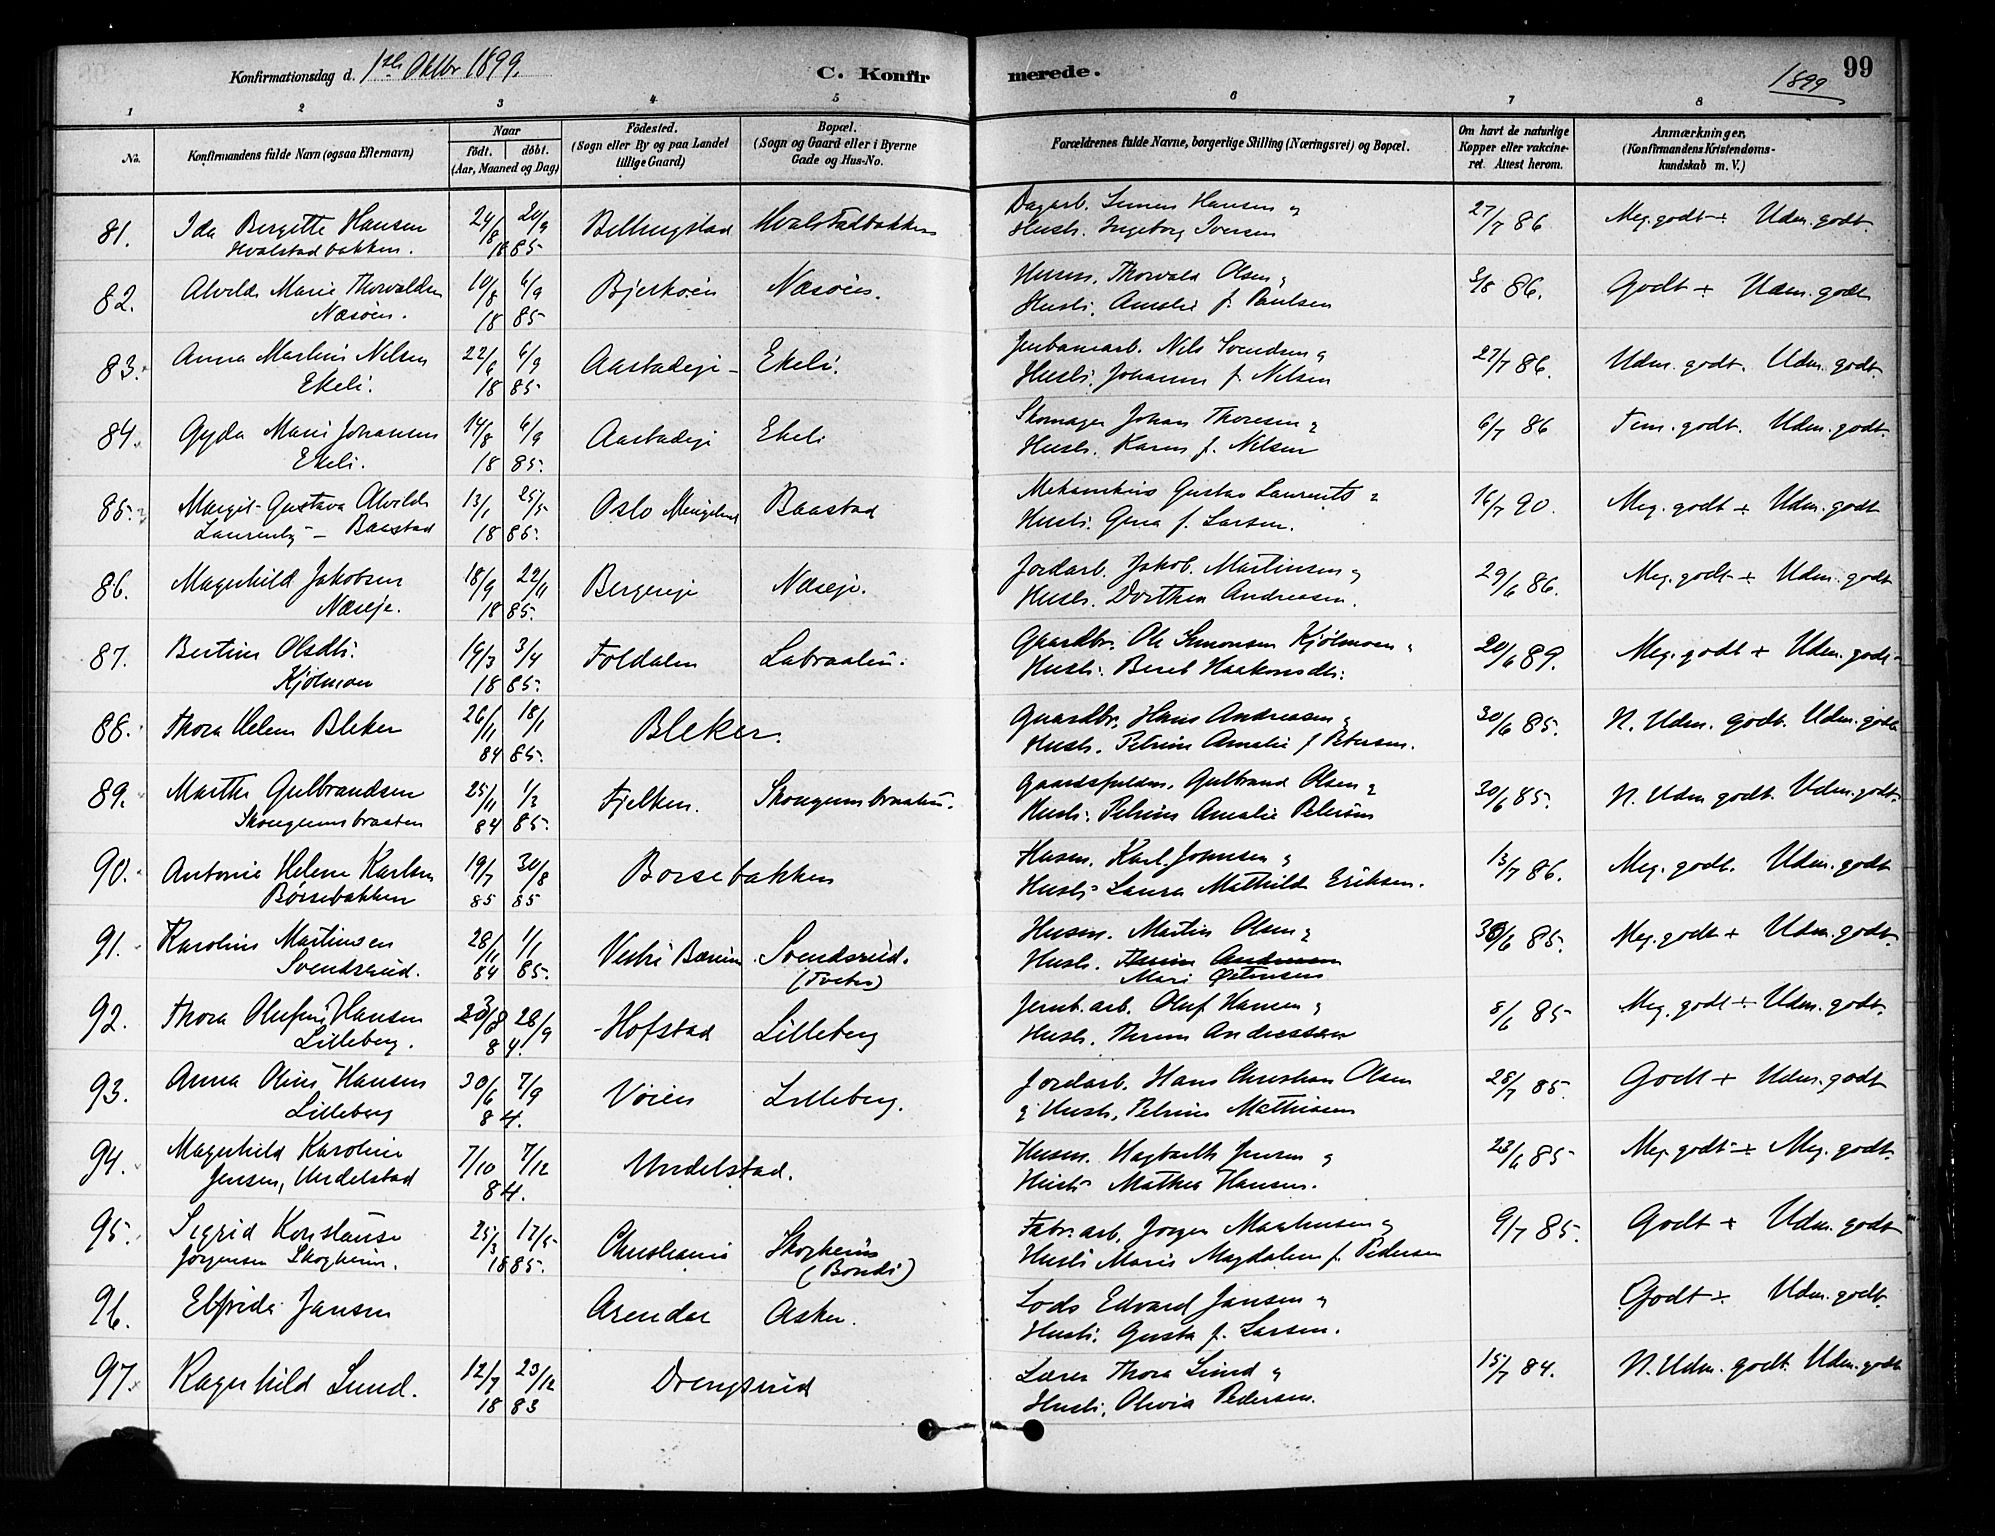 Konfirmationsdag d. 1ste Oktbr 1899.
C. Konfirmerede.
1899
99
1 2 3 4 5 6 7 8
No.
Konfirmandens fulde Navn (ogsaa Efternavn)
Naar
födt. döbt.
(Aar, Maaned og Dag)
Födested.
(Sogn eller By og paa Landet
tillige Gaard)
Bopæl.
(Sogn og Gaard eller i Byerne
Gade og Hus-No.
Forældrenes fulde Navne, borgerlige Stilling (Næringsvei) og Bopæl.
Om havt de naturlige
Kopper eller vakcine-
ret. Attest herom.
Anmærkninger,
(Konfirmandens Kristendoms-
kundskab m. V.)
81. Ida Bergitte Hansen 24/8 20/9 Billingstad Hvalstadbakken Dagarb. Simen Hansen & 27/7 86 Meg. godt + Udm. godt
Hvalstadbakken. 1885 Hustr. Ingeborg Iversen
82. Alvilde Marie Thorvaldsen 10/8 6/9 Bjerkøen Næsøen. Husm. Thorvald Olsen & 3/8 86. Godt + Udm. godt
Næsøen. 1885 Hustr. Amalie f. Paulsen
83. Anna Martine Nilsen 22/6 6/9 Aastadeje Ekeli. Jernbanearb. Nils Svendsen & 27/7 86. Udm. godt. Udm. godt.
Ekeli. 1885 Hustr. Johanne f. Nilsen
84. Gyda Marie Johansen 14/8 6/9 Aastadeje Ekeli Skomager Johan Thoresen & 6/7 86 Tem. godt. Udm. godt.
Ekeli. 1885. Hustr. Karen f. Nilsen
85. Margit Gustava Alvilde 13/1 25/5 Oslo Baastad Mekanikus Gustav Laurentz & 16/7 90. Meg. godt + Udm. godt
Baastad 1885. Hustr. Gina f. Larsen.
86. Magnhild Jakobsen 18/9 22/11 Bergereje Næseje. Jordarb. Jakob Martinsen & 29/6 86. Meg. godt + Udm. godt
Næseje. 1885. Hustr. Dorthea Andreasen.
87. Bertine Olsdtr. 19/3 3/4 Foldalen Labraaten. Gaardbr. Ole Simonsen Kjølmoen & 20/6 89. Meg. godt + Udm. godt
Kjølmoen 1885. Hustr. Beret Haakonsdtr.
88. Thora Helene Bleker 26/11 18/1 Bleker. Gaardbr. Hans Andreasen & 30/6 85. N. Udm. godt. Udm. godt
84 85. Hustr. Petrine Amalie f Petersen.
89. Marthe Gulbrandsen 25/11 1/3 Fjelken. Skougumsbraaten. Gulbrand Olsen & 30/6 85. N. Udm godt. Udm. godt.
Skougumsbraaten 84 85. Hustr. Petrine Amalie Petersen
90. Antonie Helene Karlsen 19/7 30/8 Borsebakken Husm. Karl Johnsen & 13/7 86. Meg. godt. Udm. godt
Børsebakken 85 85 Hustr. Laura Mathilde Eriksen.
91. Karoline Martinsen 28/11 1/1 Vestre Bærum Svendsrud. Husm. Martin Olsen & 30/6 85. Meg. godt + Udm. godt.
Svendsrud. 84 85. (Tveter) Hustr. Therese Andresen
Mari Østensen
92. Thora Olufine Hansen 23/8 28/9 Hofstad Lilleberg Jernb. arb. Oluf Hansen & 8/6 85 Meg. godt + Udm. godt.
Lilleberg. 84. Hustr. Andressen
93. Anna Oline Hansen 30/6 7/9 Vøien Lilleberg. Jordarb. Hans Christian Olsen 28/7 85. Godt + Udm. godt
Lilleberg 84. & Hustr. Petrine Mathisen
94. Magnhild Karoline 7/10 7/12 Undelstad. Husm. Hagbarth Jensen & 23/6 85 Meg. godt + Meg. godt.
Jensen, Undelstad 84. Hustr. Mathea Hansen.
95. Sigrid Konstanse 25/3 17/5 Christiania Skogheim Fabr. arb. Jørgen Mathisen & 9/7 85. Godt + Udm. godt
Jørgensen Skogheim. 1885. (Bondi) Hustr. Marie Magdalene f. Pedersen
96. Elfrida Jansen Arendal Asker. Lods Edvard Jansen & Godt + Udm. godt.
Hustr. Gusta f. Larsen.
97. Ragnhild Lund. 12/7 23/12 Drengsrud Lærer Thora Lund & 15/7 84. N. Udm. godt. Udm. godt
1883 Hustr. Olivia Pedersen.